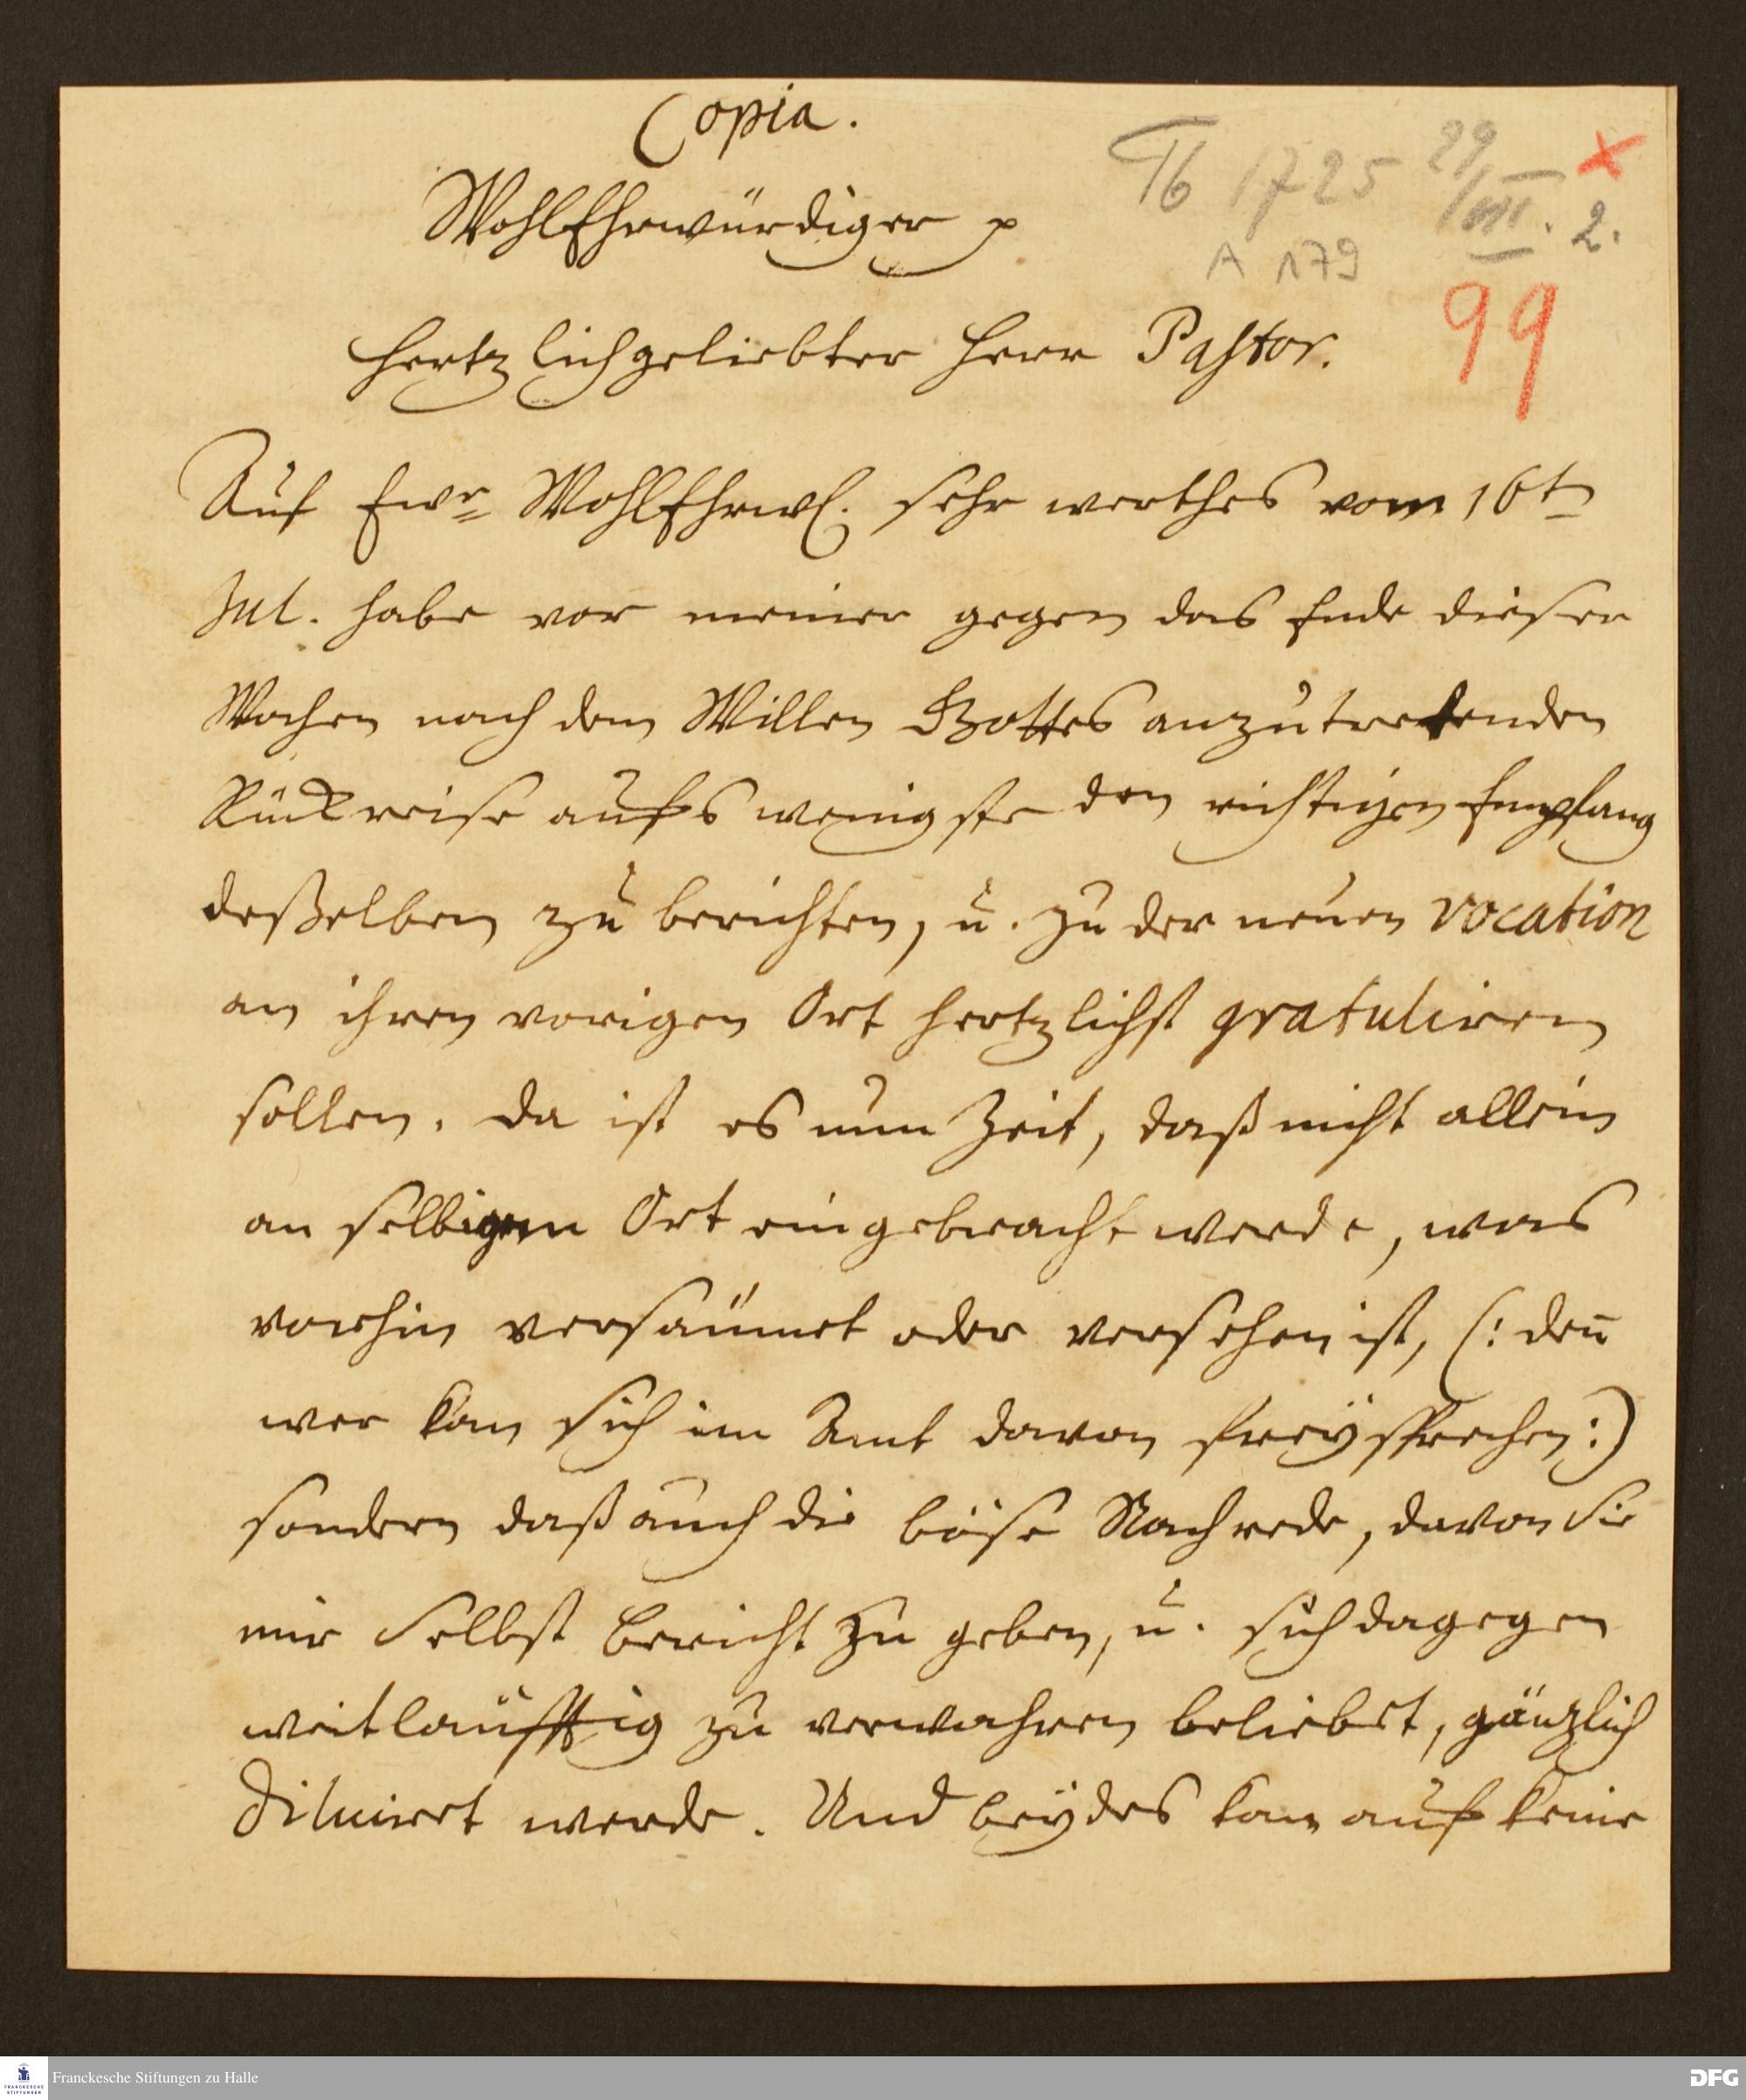 Copia.
Tb 1725 29/VIII. 2. x
A 179
99
WohlEhrwürdiger p
Hertzlichgeliebter Herr Pastor.
Auf Ewr WohlEhrw. sehr werthes vom 16t
Jul. habe vor meiner gegen das Ende dieser
Wochen nach dem Willen Gottes anzutretenden
Rückreise aufs wenigste den richtigen Empfang
deßelben zu berichten, u. zu der neuen vocation
an ihren vorigen Ort hertzlichst gratuliren
sollen. Da ist es nun Zeit, daß nicht allein
an selbigem Ort eingebracht werde, was
vorhin versäumet oder versehen ist, (: den̄
wer kan sich im Amt davon freysprechen:)
sondern daß auch die böse Nachrede, davon Sie
mir Selbst Bericht zu geben, u. sich dagegen
weitläufftig zu verwahren beliebet, gänzlich
diluiret werde. Und beydes kan auf keine
Franckesche Stiftungen zu Halle
FRANCKESCHE
STIFTUNGEN
DFG